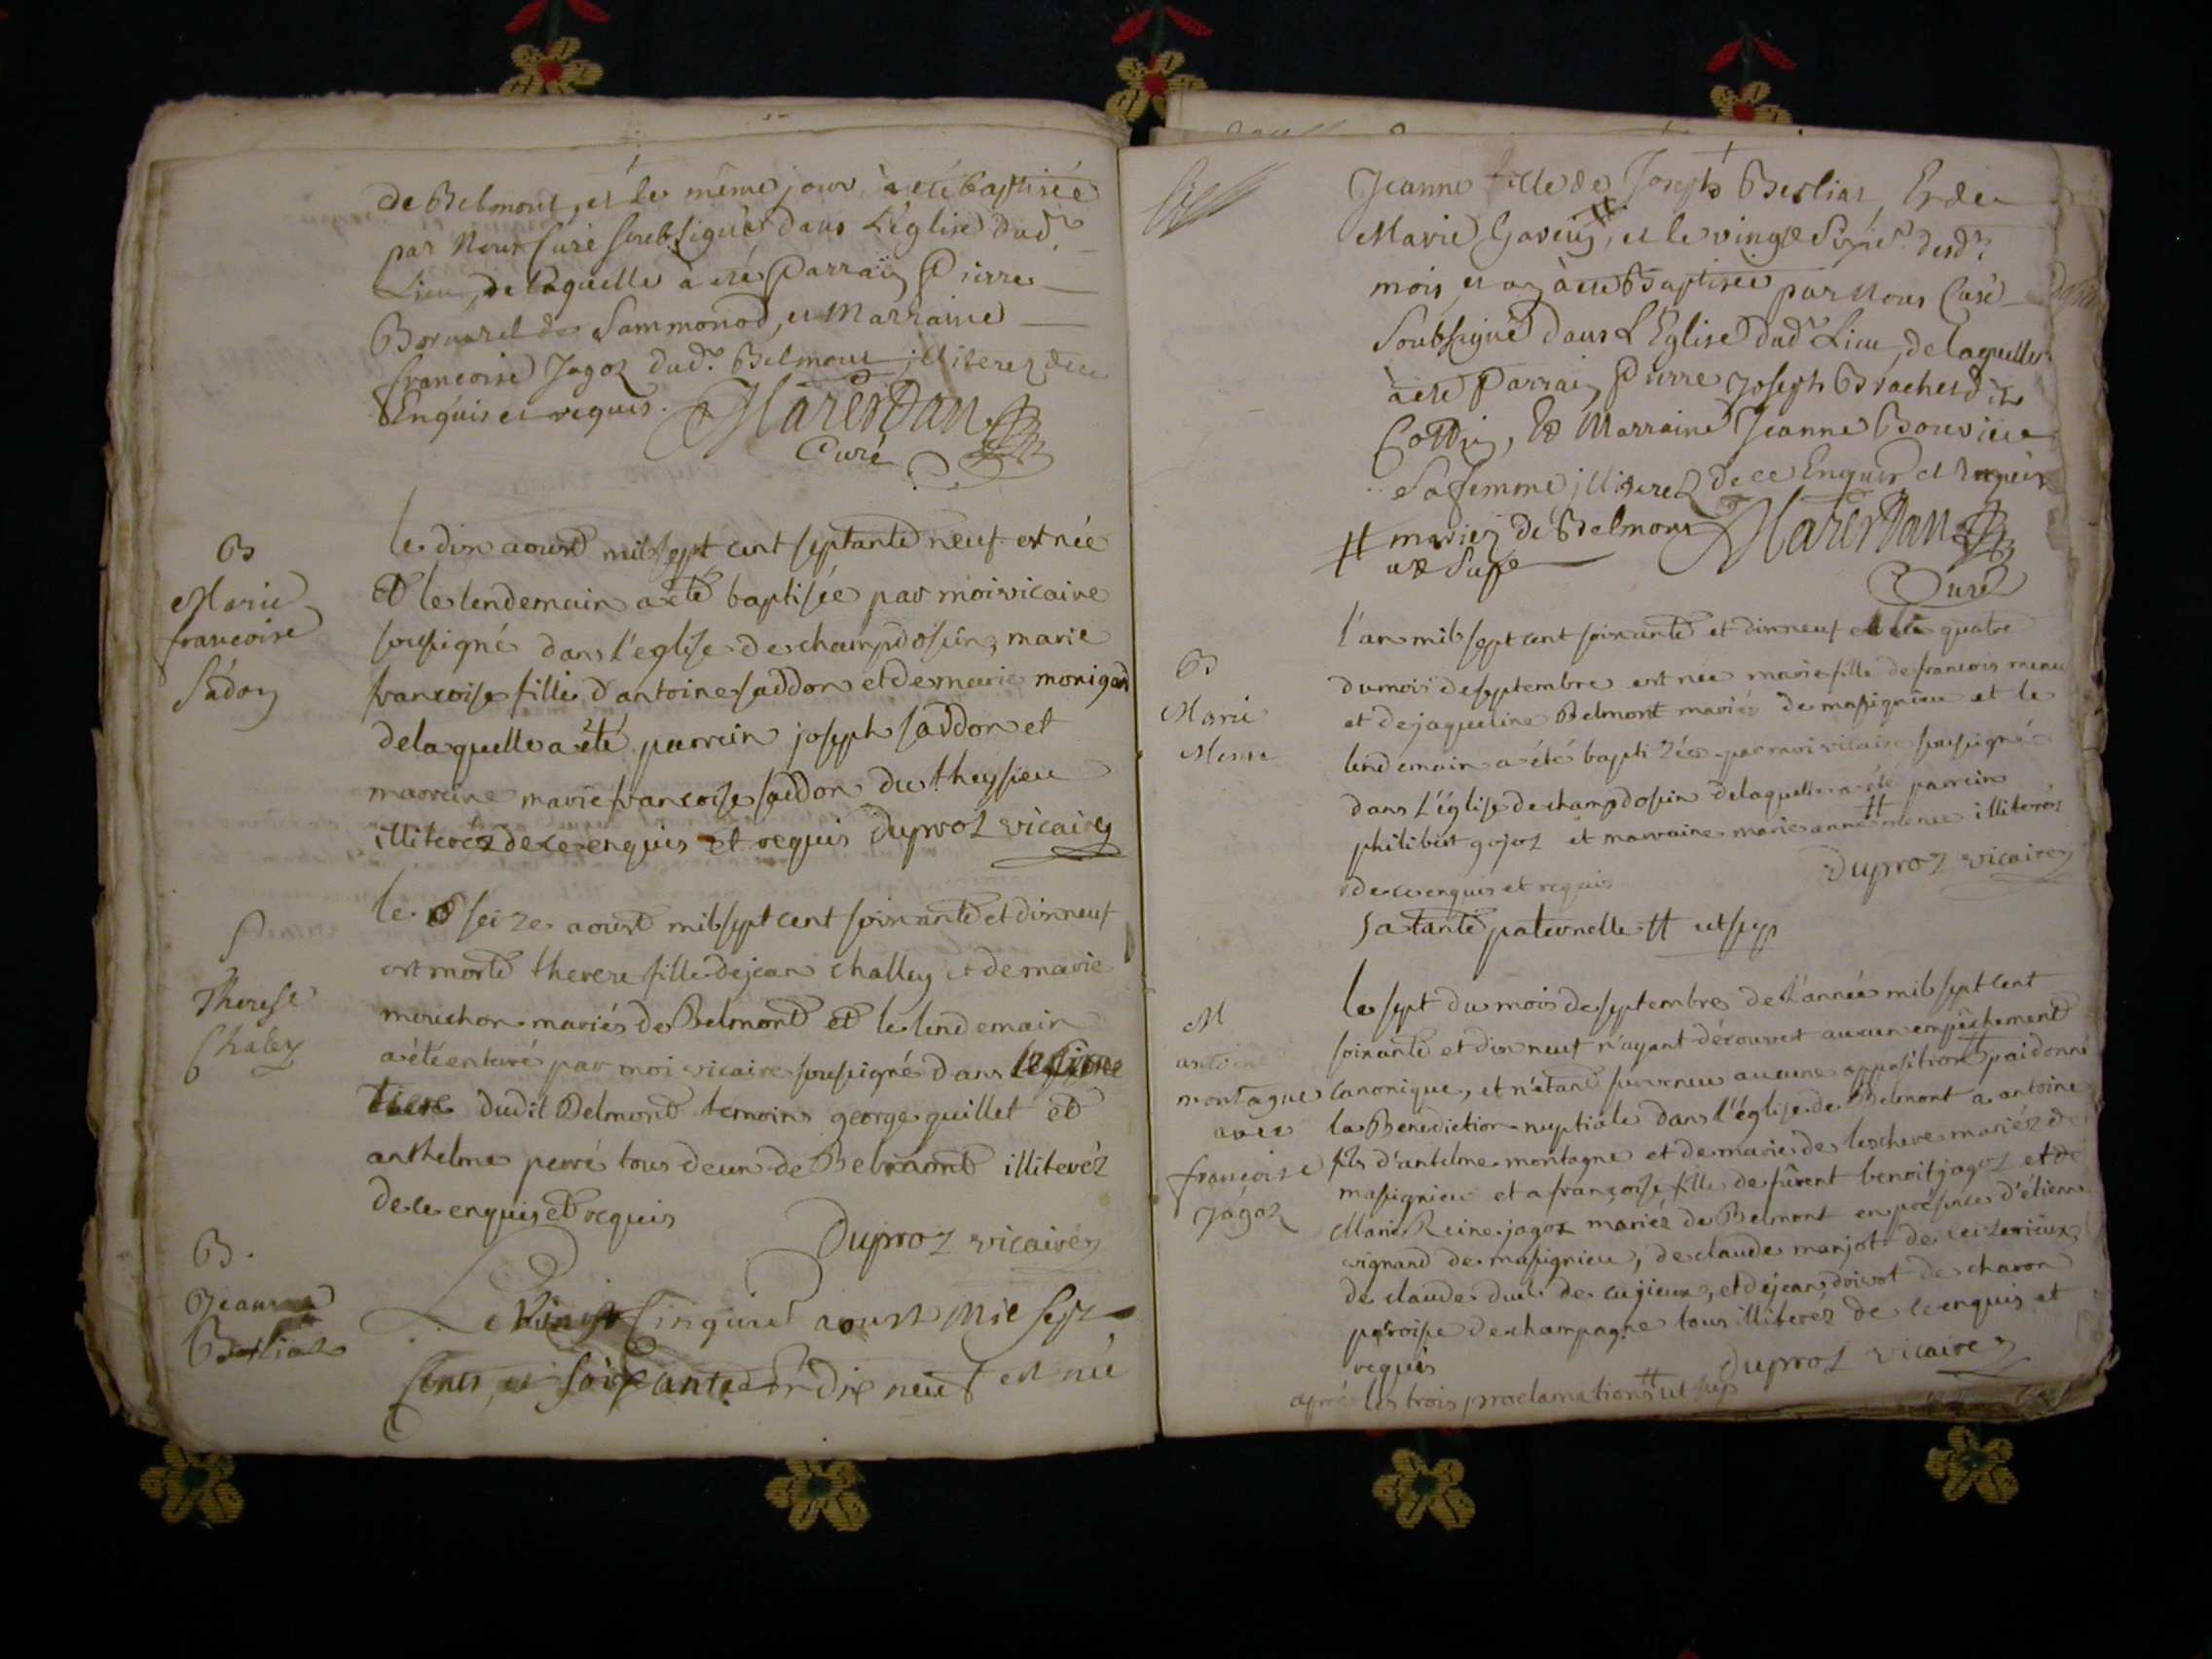 de Belmont, et le même jour à été baptisée
par Nous Curé soubsigné dans L'église dud.
Lieu, de laquelle à été Parrain Pierre
de Sammonod, et Marraine
francoise Jagoz dud. Belmont illiterez de ce
Enquis et requis.
Curé
B
Marie
francoise
Sadon
le dix aoust mil sept cent septante neuf est née
et le lendemain a été baptisée par moi vicaire
sousigné dans l'eglise de champdosin, marie
francoise fille d'antoine saddon et de marie monigad
de laquelle a été parrein joseph saddon et
marreine marie francoise saddon du theysieu
illiterés de ce enquis et requis Duproz vicaire
S
Therese
Chaley
le seize aoust mil sept cent soixante et dixneuf
est morte therese fille de jean challey et de marie
mouchon mariés de Belmont et le lendemain
a été enterré par moi vicaire sousigné dans le cime
tiere dudit Belmont temoins george guillet et
anthelme perré tous deux de Belmont illiteréz
de ce enquis et requis
Duproz vicaire
B.
Jeanne
Berliat
Le Vingt Cinquie aoust Mil Sept
Cents, et soixante et Dix neuf est née
Jeanne fille de Joseph Berliat, Et de
Marie Gaveuz, # et le vingt Sixie desd.
mois, et an à été Baptisée par Nous Curé
Soubsigné dans L'Eglise dud Lieu, de laquelle
à été Parrain Pierre Joseph Brachet d.
Cottin, Et Marraine Jeanne Bouvier
Sa femme illiterez de ce Enquis et Requis
# mariez de Belmont
ut Supr
Curé
B
Marie
Menu
l'an mil sept cent soixante et dixneuf et le quatre
du mois de septembre est née marie fille de francois menu
et de jaqueline Belmont mariés de massignieu et le
lendemain a été baptizée par moi vicaire sousigné
dans l'église de champdosin de laquelle a été parrein
philibert gojoz et marraine marie anne # menu illiterés
de ce enquis et requis
Duproz vicaire
sa tante paternelle # ut sup
M
antoine
montagne
avec
francoise
Jagoz
le sept du mois de septembre de l'année mil sept cent
soixante et dix neuf n'ayant découvert aucun empêchement
canonique, et n'étant survenu aucune opposition # j'ai donné
la Benediction nuptiale dans l'église de Belmont a antoine
fils d'antelme montagne et de marie de leschere mariéz de
massignieu et a françoise fille de furent benoit jagoz et de
Marie Reine jagoz mariéz de Belmont en présence d'étienne
vignand de massignieu, de claude marjot de ceizerieux
de claude duc de cuzieux, et de jean doivot de charon
paroisse de champagne tous illiterez de ce enquis et
requis
Duproz vicaire
après les trois proclamations # ut sup